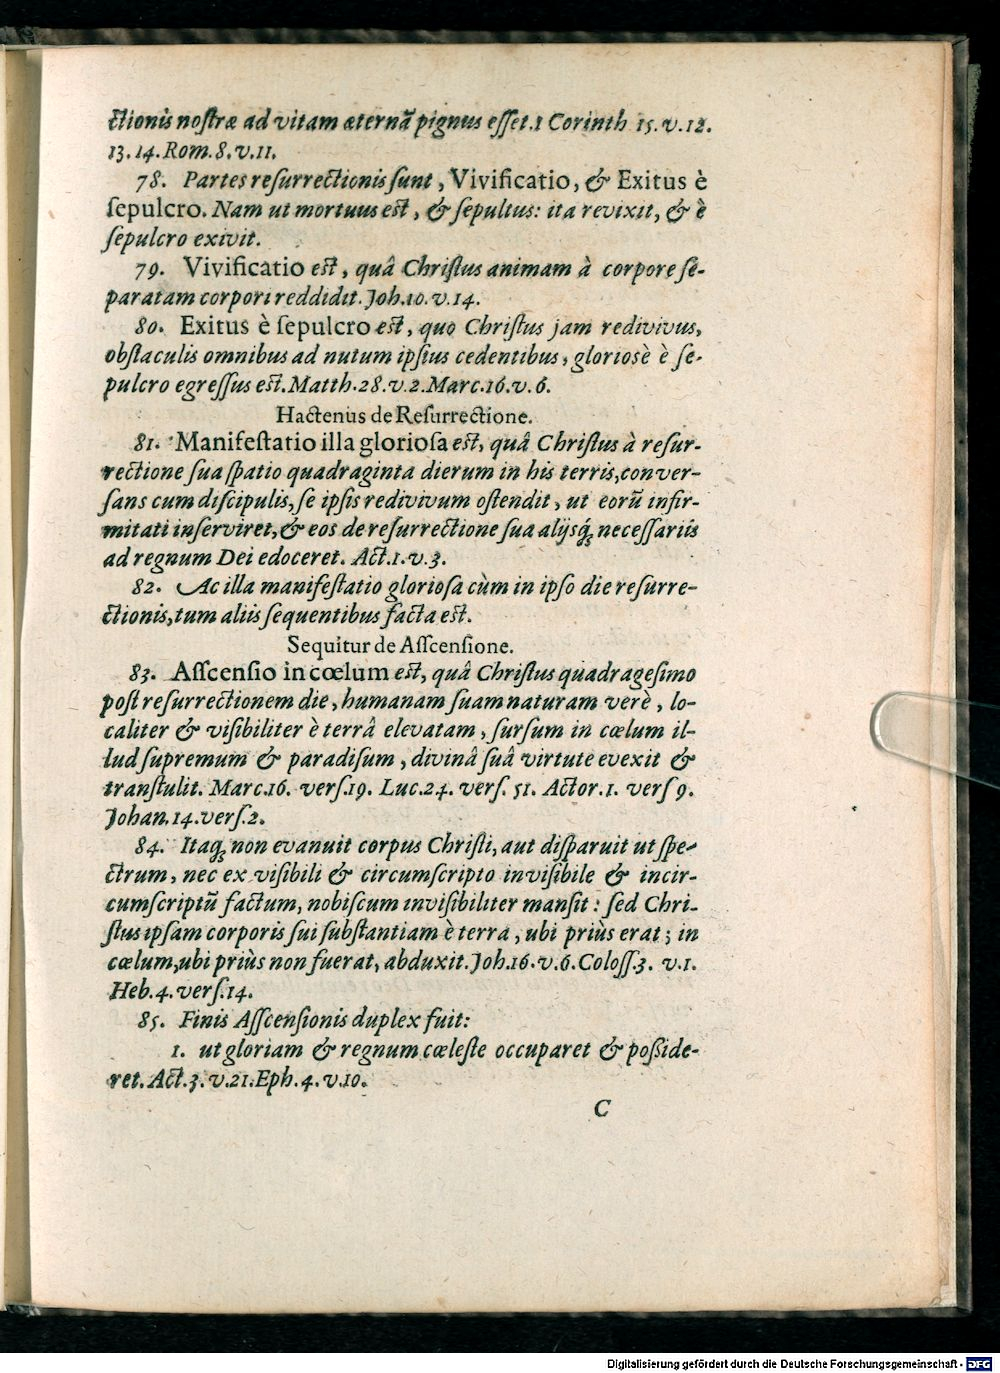 ctionis nostræ ad vitam æternā pignus esset. 1 Corinth 15. v. 12.
13. 14. Rom. 8. v. 11.
78. Partes resurrectionis sunt, Vivificatio, & Exitus è
sepulcro. Nam ut mortuus est, & sepultus: ita revixit, & è
sepulcro exivit.
79. Vivificatio est, quâ Christus animam à corpore se-
paratam corpori reddidit. Joh. 10. v. 14.
80. Exitus è sepulcro est, quo Christus jam redivivus,
obstaculis omnibus ad nutum ipsius cedentibus, gloriosè è se-
pulcro egressus est. Matth. 28. v. 2. Marc. 16. v. 6.
Hactenus de Resurrectione.
81. Manifestatio illa gloriosa est, quâ Christus à resur-
rectione sua spatio quadraginta dierum in his terris, conver-
sans cum discipulis, se ipsis redivivum ostendit, ut eorū infir-
mitati inserviret, & eos de resurrectione sua alijsq; necessariis
ad regnum Dei edoceret. Act. 1. v. 3.
82. Ac illa manifestatio gloriosa cùm in ipso die resurre-
ctionis, tum aliis sequentibus facta est.
Sequitur de Asscensione.
83. Asscensio in cœlum est, quâ Christus quadragesimo
post resurrectionem die, humanam suam naturam verè, lo-
caliter & visibiliter è terrâ elevatam, sursum in cœlum il-
lud supremum & paradisum, divinâ suâ virtute evexit &
transtulit. Marc. 16. vers. 19. Luc. 24. vers. 51. Actor. 1. vers 9.
Johan. 14. vers. 2.
84. Itaq; non evanuit corpus Christi, aut disparuit ut spe-
ctrum, nec ex visibili & circumscripto invisibile & incir-
cumscriptū factum, nobiscum invisibiliter mansit: sed Chri-
stus ipsam corporis sui substantiam è terra, ubi priùs erat; in
cœlum, ubi priùs non fuerat, abduxit. Joh. 16. v. 6. Coloss. 3. v. 1.
Heb. 4. vers. 14.
85. Finis Asscensionis duplex fuit:
1. ut gloriam & regnum cœleste occuparet & posside-
ret. Act. 3. v. 21. Eph. 4. v. 10.
C
Digitalisierung gefördert durch die Deutsche Forschungsgemeinschaft - DFG